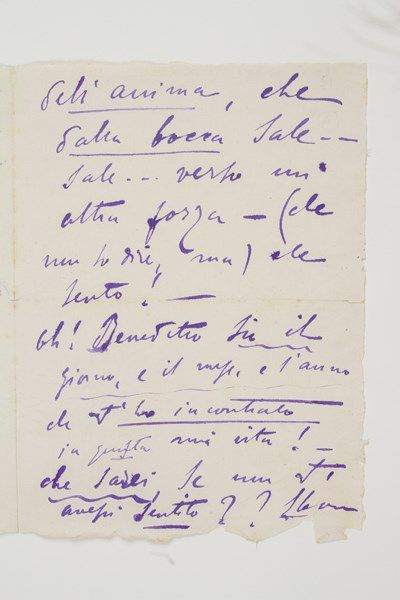 dell'anima, che
dalla bocca sale --
sale --- verso un'
altra forza – (che
non so dire, ma) che
sento! —
Oh! Benedetto sia il
giorno, e il mese, e l'anno
che T'ho incontrato
in questa mia vita! –
che sarei, se non T'
avessi sentito??